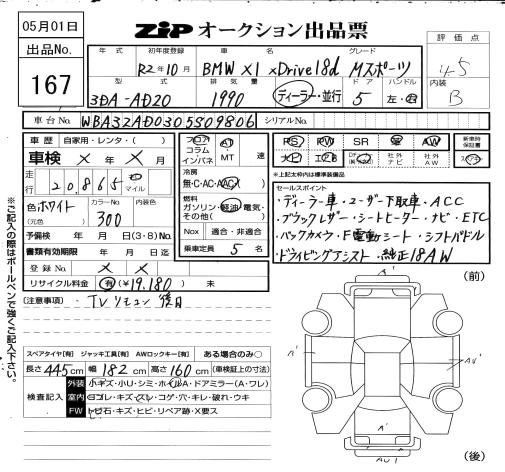 05月01日
ZIP オークション出品票
出品No.
167
評価点
4.5
内装
B
年式 初年度登録 車名 グレード
R2年10月 BMW X1 xDrive18d Mスポーツ
型式 排気量 ドア ハンドル
3DA-AD20 1990 ディーラー・並行 5 左・右
車台No. WBA32AD0305S09806 シリアルNo.
車歴 自家用・レンタ・( )
車検 × 年 × 月
走行 20,865 km マイル
色 ホワイト カラーNo. 内装色
(元色) 300
予備検 年 月 日(3・8)No.
書類有効期限 年 月 日迄
登録No. × ×
リサイクル料金 有(¥19,180) 未
フロア コラム インパネ AT MT 速
冷房
無・C・AC・AAC
燃料
ガソリン・軽油・電気・
その他( )
Nox 適合・非適合
乗車定員 5 名
PS PW SR 革 AW 新車時保証書
ナビ エアB 社外ナビ 社外AW
*上記太枠内は標準装備品
セールスポイント
・ディーラー車・ユーザー下取車・ACC
・ブラックレザー・シートヒーター・ナビ・ETC
・バックカメラ・F電動シート・シフトパドル
・ドライビングアシスト・純正18AW
(注意事項)・TVリモコン後日
スペアタイヤ[有] ジャッキ工具[有] AWロックキー[有] ある場合のみ○
長さ 445cm 幅 182cm 高さ 160cm (車検証上の寸法)
検査記入
外装 小キズ・小U・シミ・ホイルA・ドアミラー(A・ワレ)
室内 ヨゴレ・キズ・スレ・コゲ・穴・キレ・破れ・ウキ
FW トビ石・キズ・ヒビ・リペア跡・X要ス
※ご記入の際はボールペンで強くご記入下さい。
(前)
A'
A'
AU'
A'
AU1
(後)